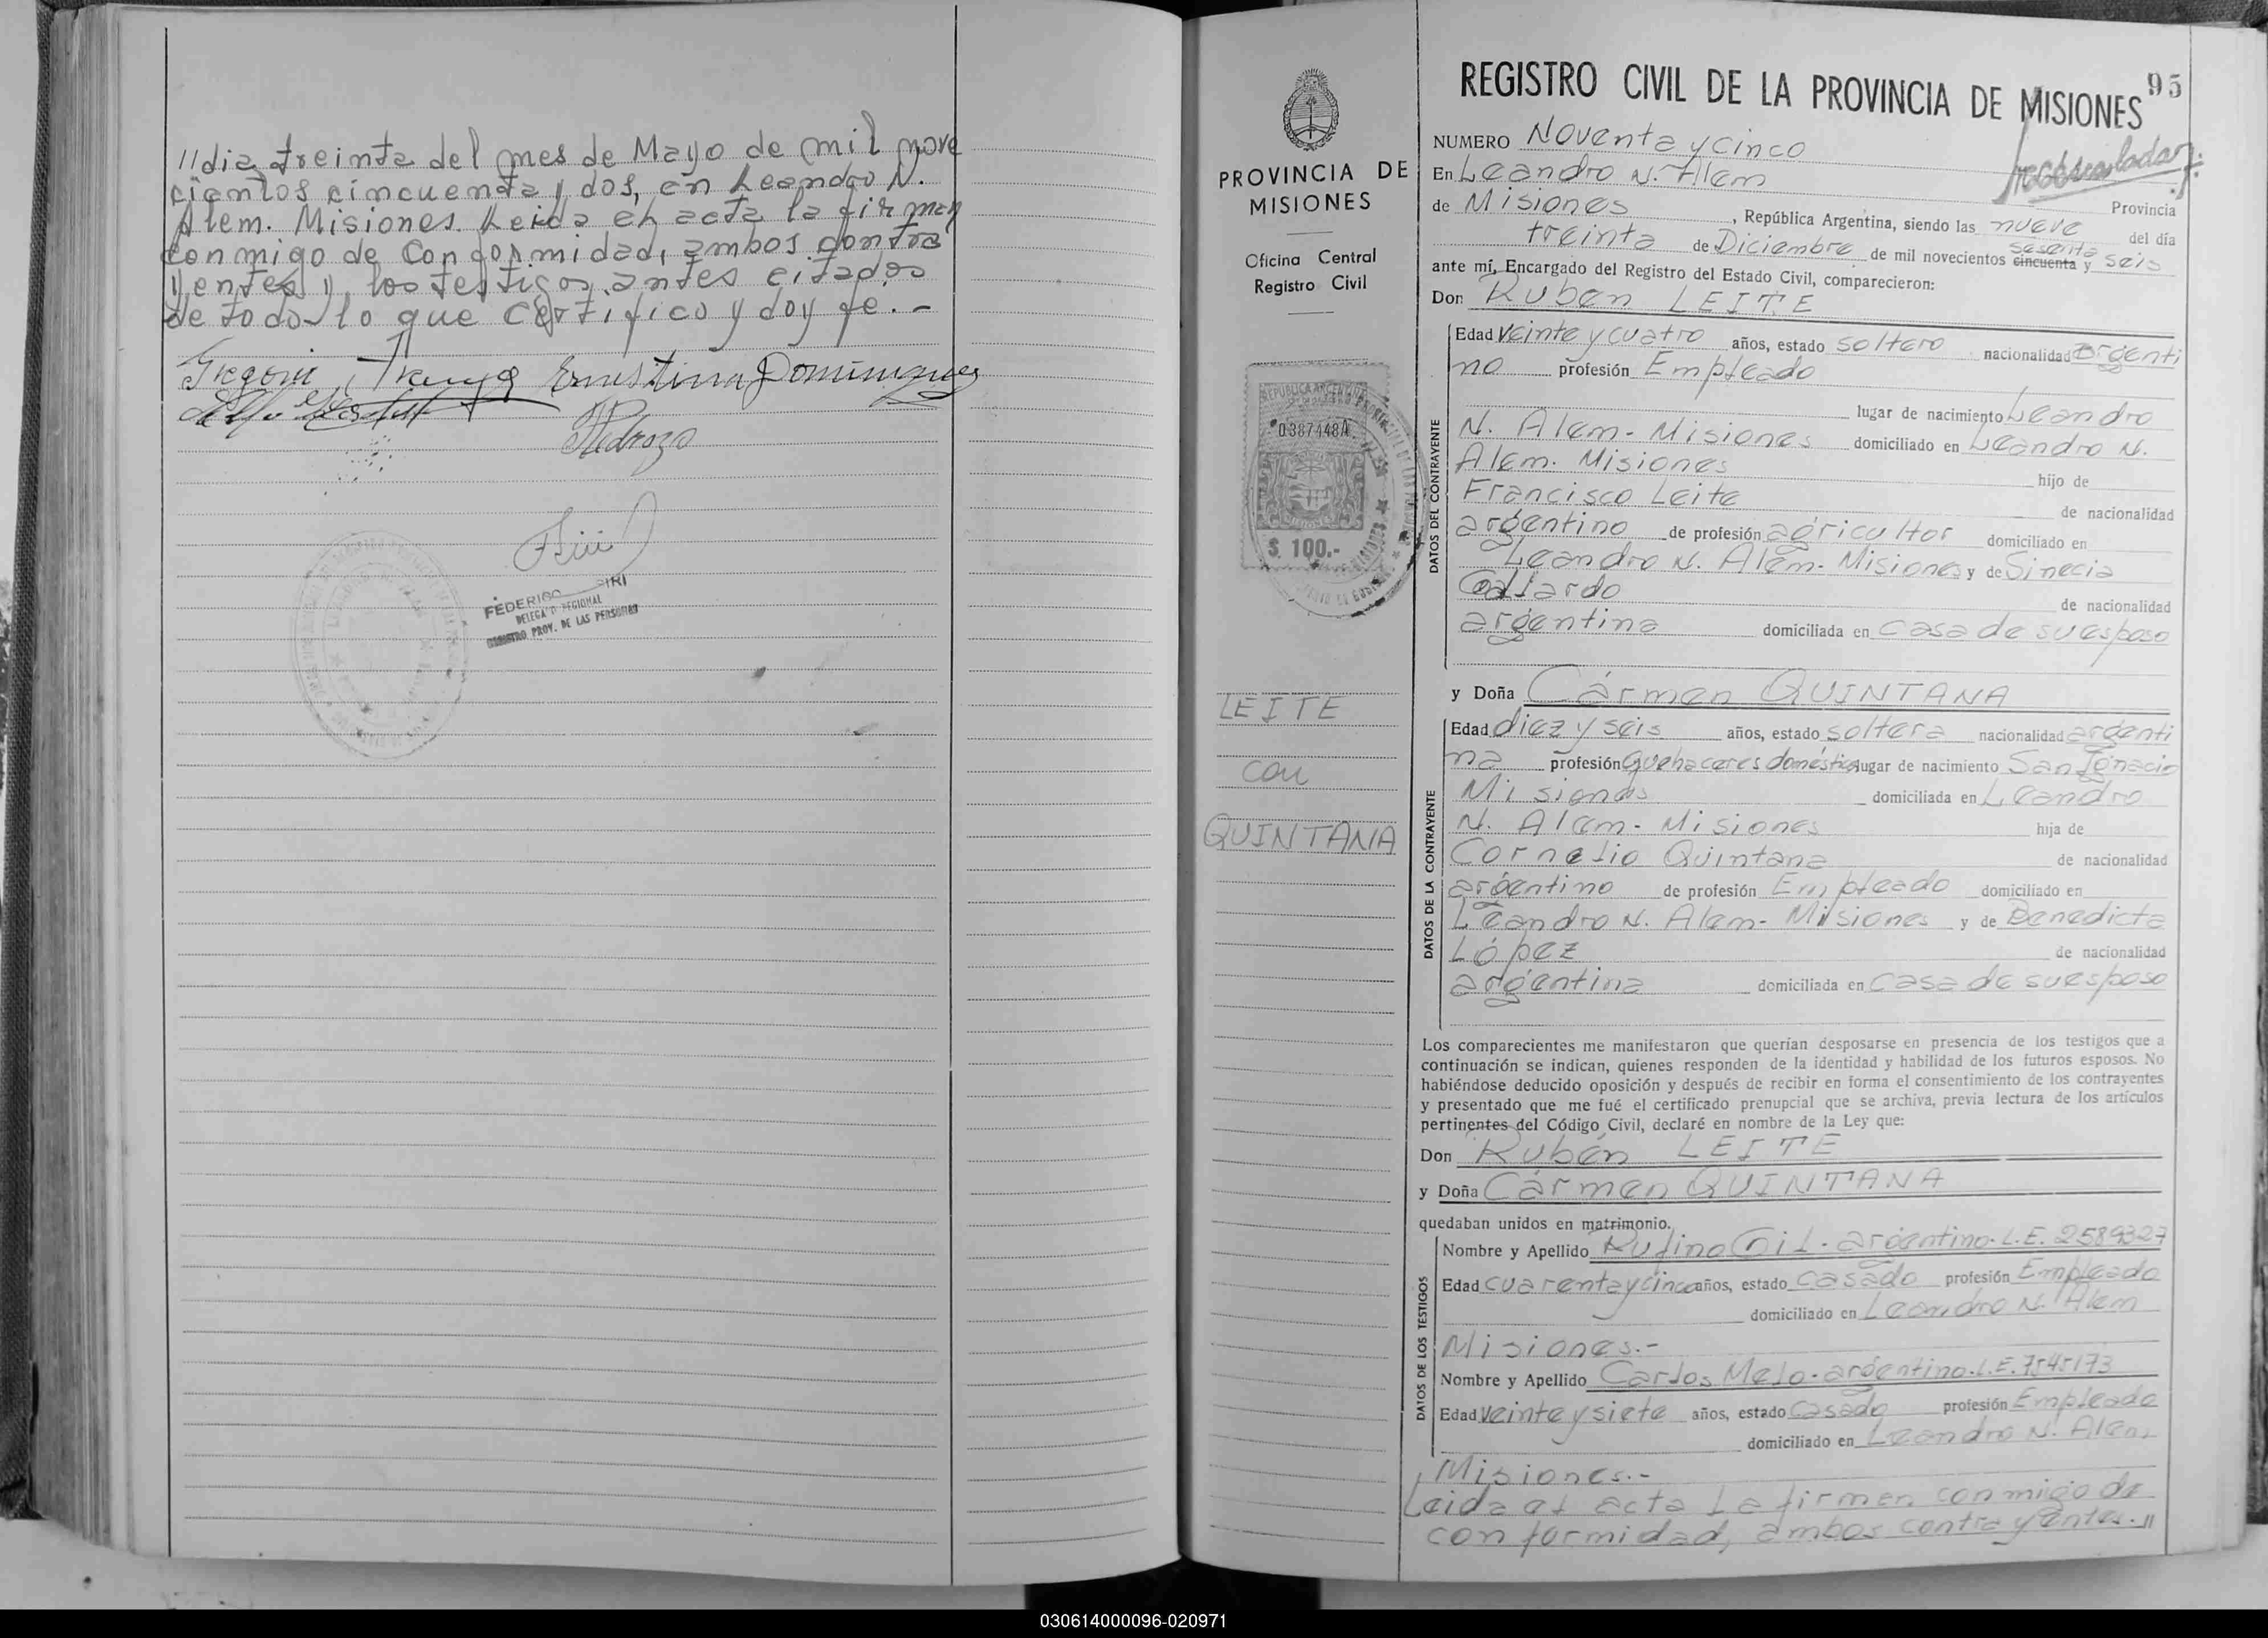 //dia treinta del mes de Mayo de mil nove
cientos cincuenta y dos, en Leandro N.
Alem. Misiones. Leida el acta la firman
conmigo de conformidad, ambos contra
yentes y los testigos antes citados
de todo lo que certifico y doy fe.-
Ernestina Dominguez
Pedrozo
FEDERICO
DELEGADO REGIONAL
REGISTRO PROV. DE LAS PERSONAS
95
REGISTRO CIVIL DE LA PROVINCIA DE MISIONES
PROVINCIA DE
MISIONES
Oficina Central
Registro Civil
0387448A
$ 100.-
LEITE
con
QUINTANA
NUMERO Noventa y cinco
En Leandro N. Alem Provincia
de Misiones, República Argentina, siendo las nueve del día
treinta de Diciembre de mil novecientos cincuenta sesenta y seis
ante mí, Encargado del Registro del Estado Civil, comparecieron:
Don Rubén LEITE
DATOS DEL CONTRAYENTE
Edad veinte y cuatro años, estado soltero nacionalidad argenti
no profesión Empleado
lugar de nacimiento Leandro
N. Alem- Misiones domiciliado en Leandro N.
Alem. Misiones hijo de
Francisco Leite de nacionalidad
argentino de profesión agricultor domiciliado en
Leandro N. Alem- Misiones y de Sinecia
Gallardo de nacionalidad
argentina domiciliada en casa de su esposo
y Doña Cármen QUINTANA
DATOS DE LA CONTRAYENTE
Edad diez y seis años, estado soltera nacionalidad argenti
na profesión quehaceres domésticos lugar de nacimiento San Ignacio
Misiones domiciliada en Leandro
N. Alem- Misiones hija de
Cornelio Quintana de nacionalidad
argentino de profesión Empleado domiciliado en
Leandro N. Alem- Misiones y de Benedicta
López de nacionalidad
argentina domiciliada en casa de su esposo
Los comparecientes me manifestaron que querían desposarse en presencia de los testigos que a
continuación se indican, quienes responden de la identidad y habilidad de los futuros esposos. No
habiéndose deducido oposición y después de recibir en forma el consentimiento de los contrayentes
y presentado que me fué el certificado prenupcial que se archiva, previa lectura de los artículos
pertinentes del Código Civil, declaré en nombre de la Ley que:
Don Rubén LEITE
y Doña Cármen QUINTANA
quedaban unidos en matrimonio.
DATOS DE LOS TESTIGOS
Nombre y Apellido Rufino Gil- argentino- L.E. 2589327
Edad cuarenta y cinco años, estado casado profesión Empleado
domiciliado en Leandro N. Alem
Misiones.-
Nombre y Apellido Carlos Melo- argentino- L.E. 7545173
Edad veinte y siete años, estado casado profesión Empleado
domiciliado en Leandro N. Alem
Misiones.-
Leida el acta la firman conmigo de
conformidad, ambos contrayentes.//
030614000096-020971